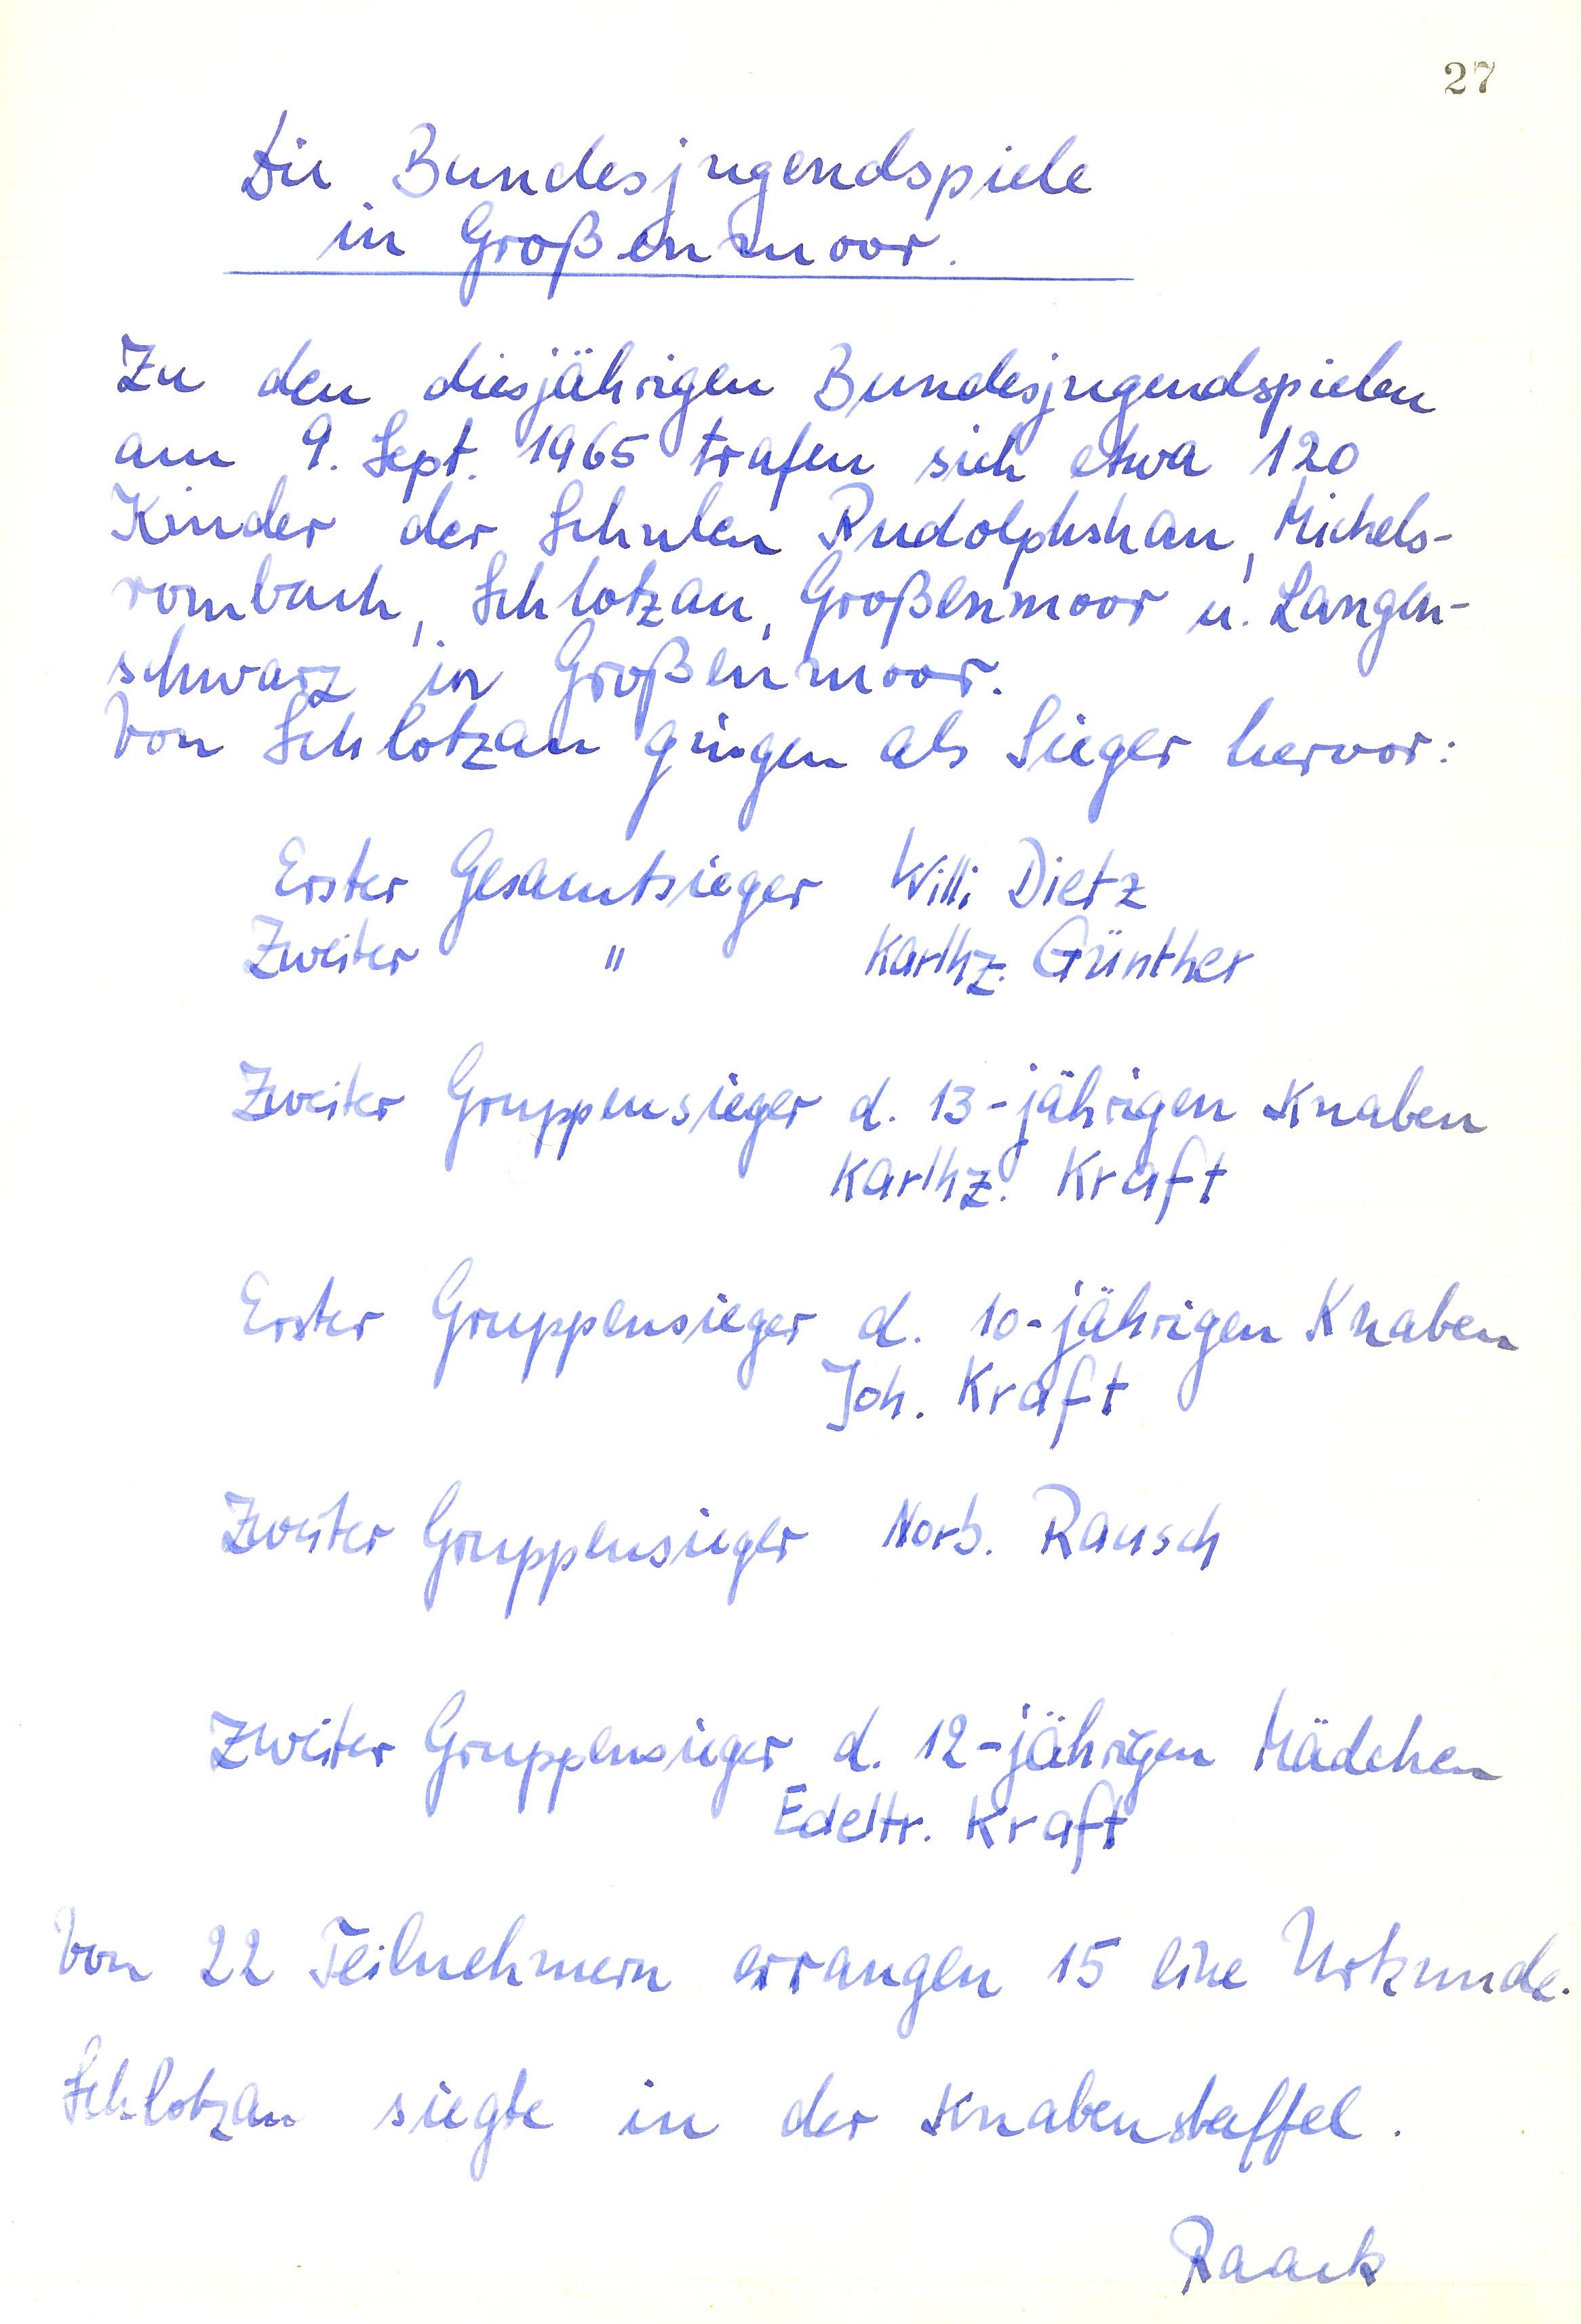 27
Die Bundesjugendspiele
in Großenmoor.
Zu den diesjährigen Bundesjugendspielen
am 9. Sept. 1965 trafen sich etwa 120
Kinder der Schulen Rudolphshan, Michels-
rombach, Schlotzau, Großenmoor u. Langen-
schwarz in Großenmoor.
Von Schlotzau gingen als Sieger hervor:
Erster Gesamtsieger Willi Dietz
Zweiter " Karlhz. Günther
Zweiter Gruppensieger d. 13-jährigen Knaben
Karlhz. Kraft
Erster Gruppensieger d. 10-jährigen Knaben
Joh. Kraft
Zweiter Gruppensieger Norb. Rausch
Zweiter Gruppensieger d. 12-jährigen Mädchen
Edeltr. Kraft
Von 22 Teilnehmern errangen 15 eine Urkunde.
Schlotzau siegte in der Knabenstaffel.
Raack